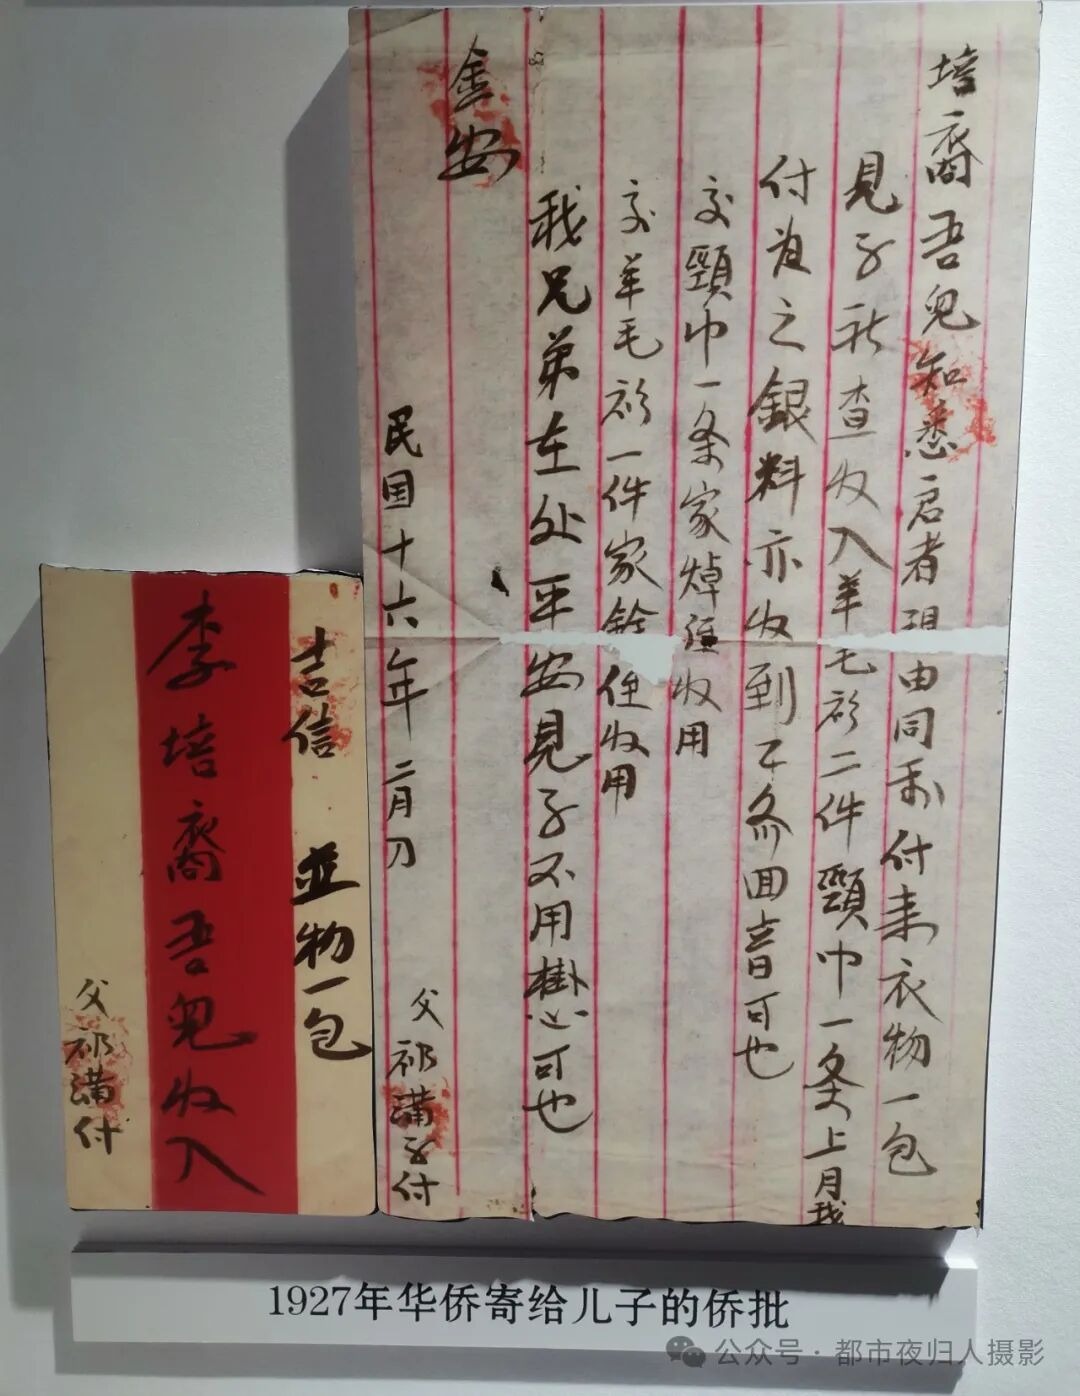 培裔吾兒知悉启者現由同利付来衣物一包
見子祈查收入羊毛衫二件頸巾一条上月我
付为之銀料亦收到了务回音可也
交頸巾一条家焯侄收用
交羊毛衫一件家銓侄收用
我兄弟在处平安見子不用掛心可也
金安
民国十六年二月
父祁满子付
吉信 並物一包
李培裔吾兒收入
父祁满付
1927年华侨寄给儿子的侨批
公众号·都市夜归人摄影